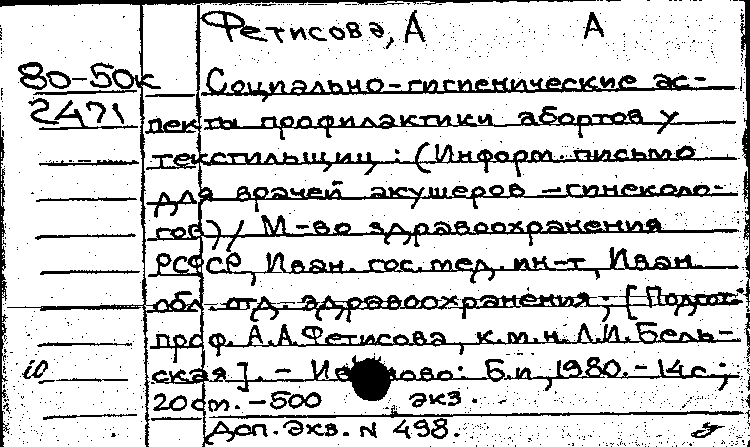 Фетисова, А А
80-50к Социально-гигиенические ас-
2471 пекты профилактики абортов у
текстильщиц : (Информ. письмо
для врачей акушеров -гинеколо-
гов) / М-во здравоохранения
РСФСР, Иван. гос. мед. ин-т, Иван.
обл. отд. здравоохранения ; [Подгот.
проф. А.А.Фетисова, к.м.н. Л.И. Бель-
10 ская]. - Иваново: Б.и, 1980. - 14с ;
20см. -500 экз.
Доп. экз. N 498.